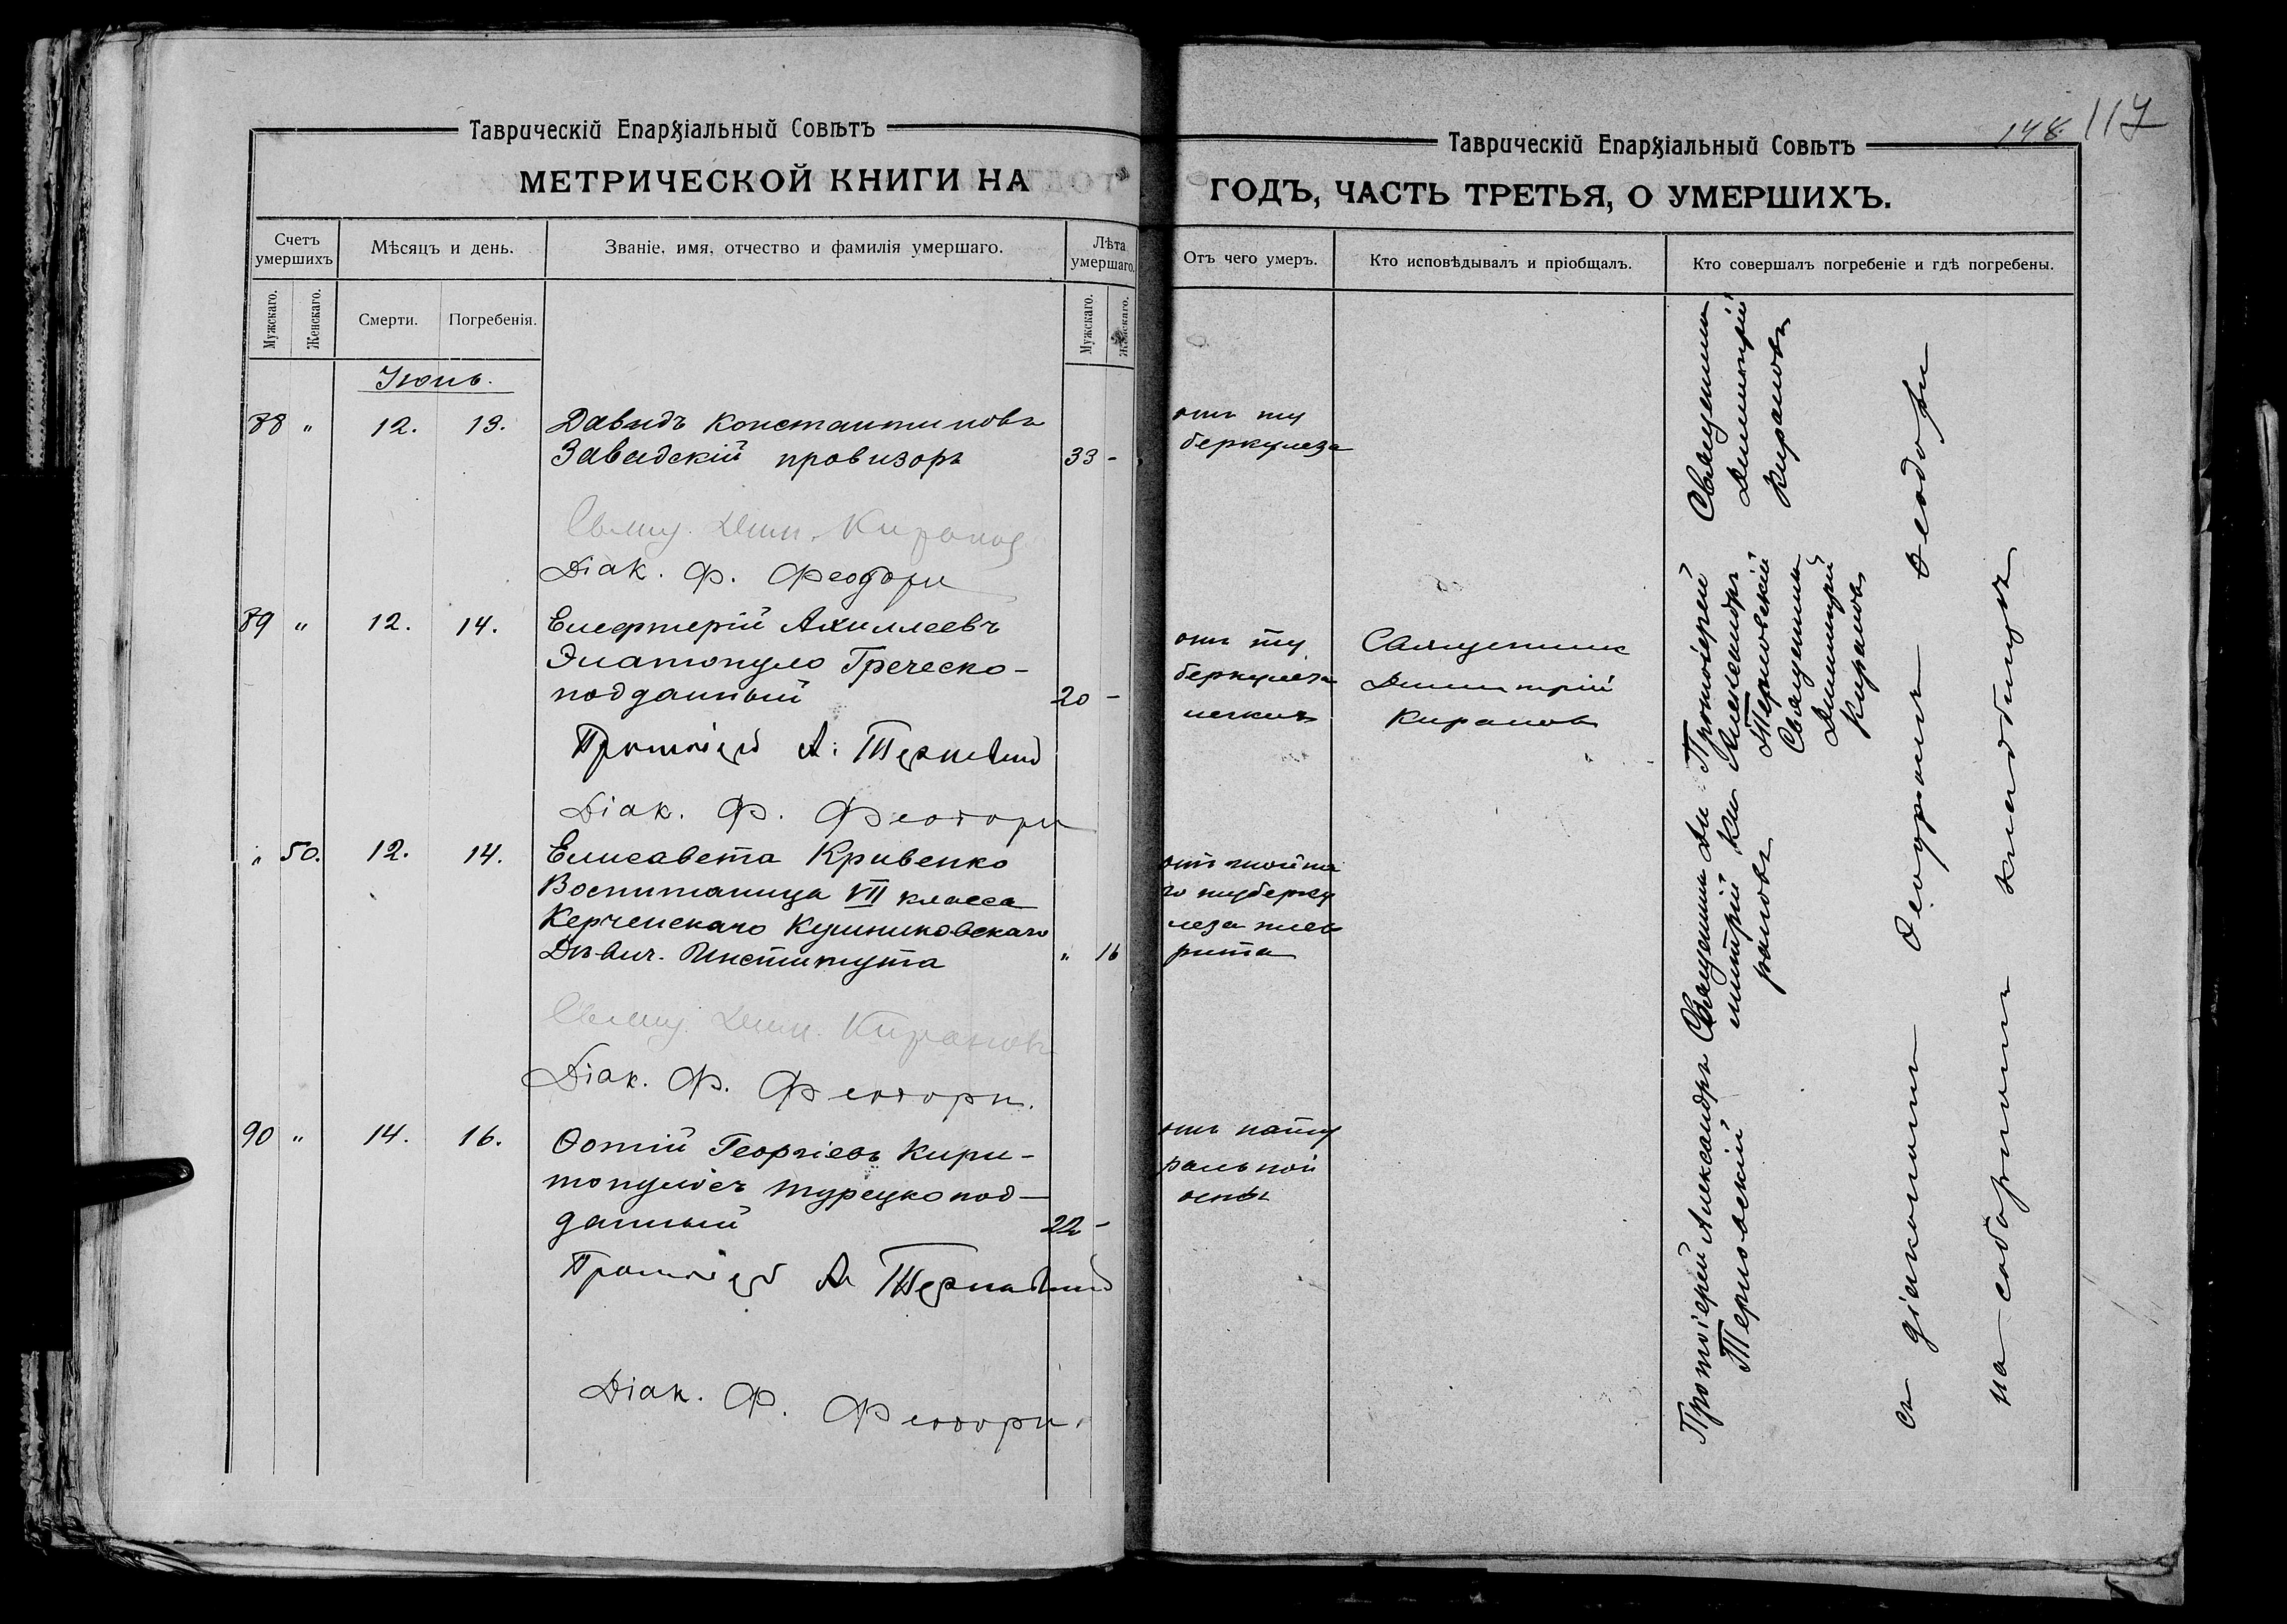 Таврическій Епархіальный Совѣтъ
МЕТРИЧЕСКОЙ КНИГИ НА
Счетъ умершихъ
Мѣсяцъ и день.
Званіе, имя, отчество и фамилія умершаго.
Лѣта умершаго.
Мужскаго.
Женскаго.
Смерти.
Погребенія.
Мужскаго.
Женскаго.
Іюнь.
88 " 12. 13. Давидъ Константиновъ
Завадскій провизоръ 33 -
Свящ. Дим. Кирановъ
Діак. Ф. Феодори
89 " 12. 14. Елефтерій Ахиллеевъ
Элатопуло Греческо-
подданный 20 -
Протоіерей А. Терновскій
Діак. Ф. Феодори
" 50. 12. 14. Елисавета Кривенко
Воспитаница VII класса
Керченскаго Кушниковскаго
Дѣвич. Института " 16
Свящ. Дим. Кирановъ
Діак. Ф. Феодори.
90 " 14. 16. Ѳотій Георгіевъ Кири-
топуло турецкопод-
данный 22 -
Протоіерей А Терновскій
Діак. Ф. Феодори.
148. 117
Таврическій Епархіальный Совѣтъ
ГОДЪ, ЧАСТЬ ТРЕТЬЯ, О УМЕРШИХЪ.
Отъ чего умеръ.
Кто исповѣдывалъ и пріобщалъ.
Кто совершалъ погребеніе и гдѣ погребены.
отъ ту
беркулеза
отъ ту
беркулеза
легкихъ
Священникъ
Димитрій
Кирановъ
го туберку
леза плев
рита
отъ нату
ральной
оспы
Священникъ
Димитрій
Кирановъ
Протоіерей
Александръ
Терновскій
Священникъ
Димитрій
Кирановъ
Священникъ Ди
митрій Ки
рановъ
Протоіерей Александръ
Терновскій
съ діакономъ Ѳеодоромъ Ѳеодори
на соборномъ кладбищѣ